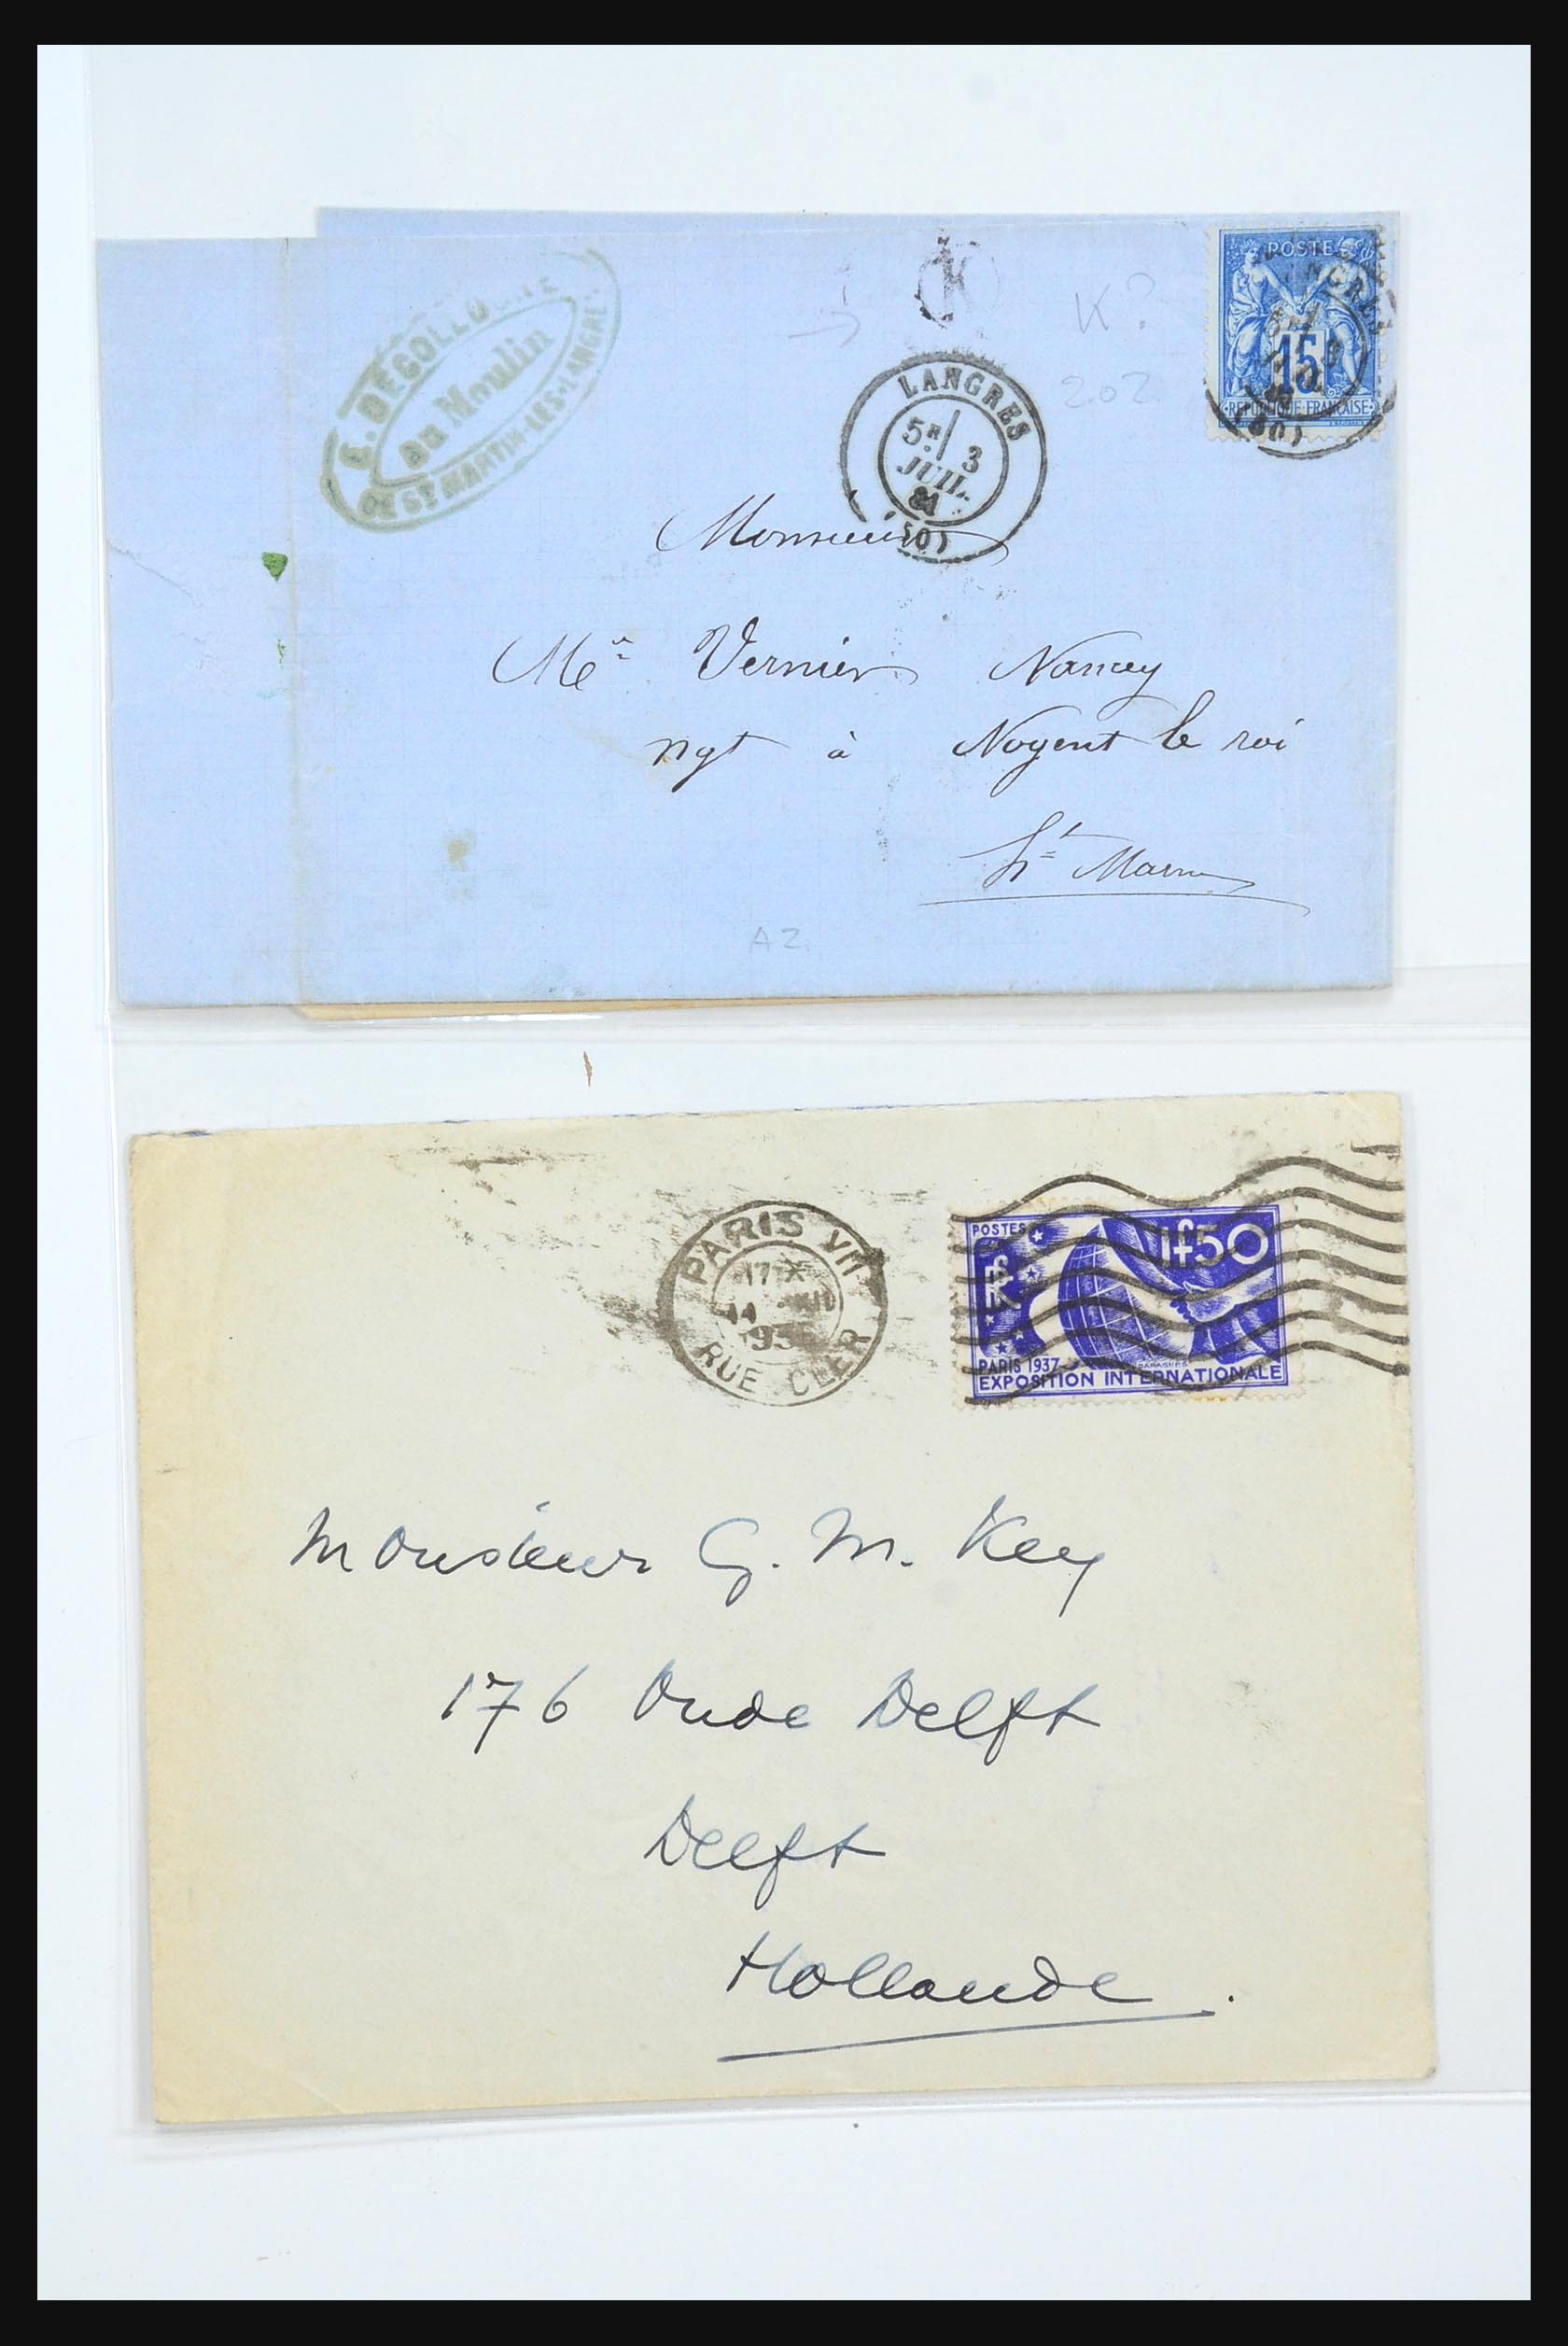 E. DEGOLLO
au Moulin
DE ST MARTIN-LES-LANGRE
K
K?
202
POSTE
15
REPUBLIQUE FRANCAISE
LANGRES
5E 3
JUIL.
81
(50)
Monsieur
Me Vernier Nancey
ngt à Nogent le roi
Hte Marne
A2.
PARIS VII
17 X
14 XII
193
RUE CLER
POSTES
1F50
RF
PARIS 1937
EXPOSITION INTERNATIONALE
Monsieur G. M. Key
176 Oude Delft
Delft
Hollande.